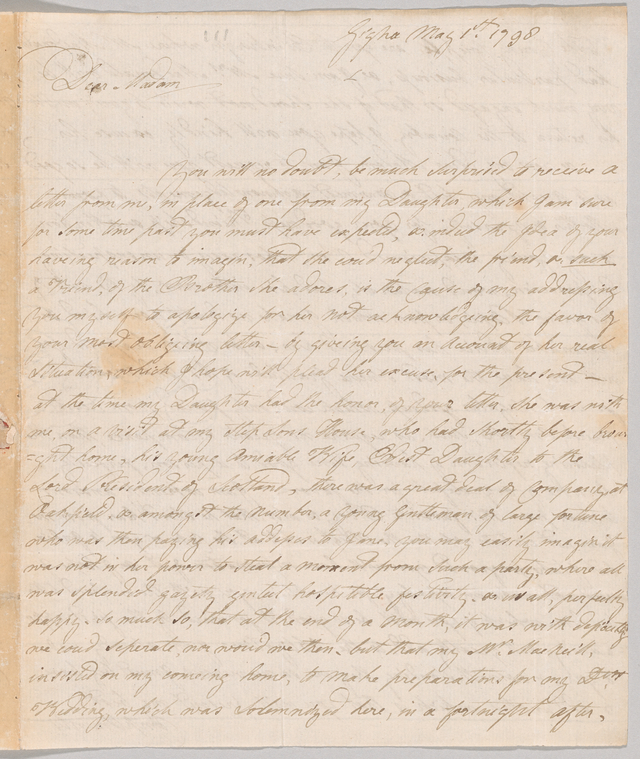 Gigha May 1st 1798
Dear Madam
You will no doubt, be much surprised to receive a
letter from me, in place of one from my Daughter which I am sure
for some time past you must have expected, & indeed the Idea of your
haveing reason to imagin, that she could neglect, the friend, or such
a Friend, of the Brother she adores, is the Cause of my addressing
you myself to apologize for her not acknowledging, the favor of
your most obligeing letter – by giveing you an Account of her real
Situation, which I hope will plead her excuse, for the present –
at the time my Daughter had the honor, of your letter, she was with
me, on a visit at my Stepsons House, who had shortly before brou
=ght home, his young Amiable Wife, Eldest Daughter to the
Lord President, of Scotland, there was a great deal of Company, at
Oakfield & amongst the Number, a young Gentleman, of large fortune
who was then paying his addresses to Jane. You may easily imagin it
was not in her power to steal a moment from such a party, where all
was splendid gayety genteel hospitible festivity. & us all, perfectly
happy. so much so, that at the end of a Month, it was with dificulty
we coud seperate, nor would we then. but that my Mr. MacNeill,
insisted on my comeing home, to make preparations for my Dtrs
Wedding, which was Solemnized here, in a fortnight after.